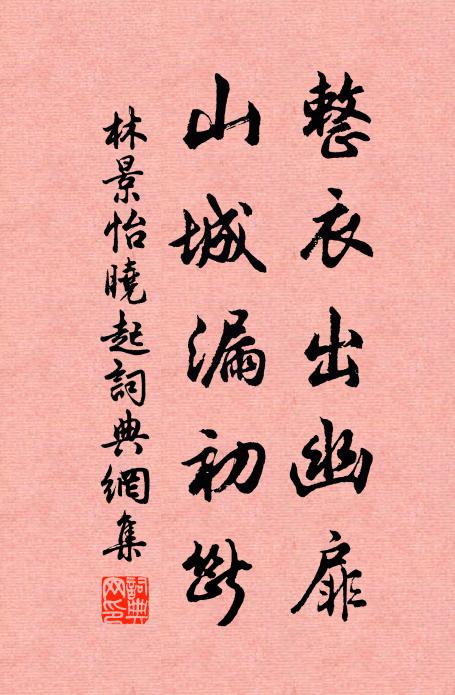 整衣出幽扉
山城漏初斷
林景怡曉起詞典網集
詞典網印